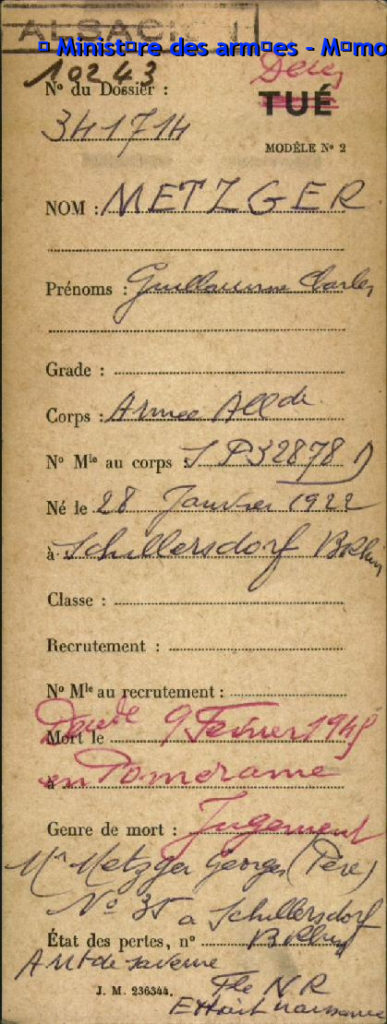 ALSACE
© Ministère des armées - Mémo
10243
N° du Dossier :
Décès
TUÉ
341714
MODÈLE N° 2
NOM : METZGER
Prénoms : Guillaume Charles
Grade :
Corps : Armée Allde
N° Mle au corps : S P32878 D
Né le 28 Janvier 1922
à Schillersdorf B Rhin
Classe :
Recrutement :
N° Mle au recrutement :
Décédé
Mort le 9 Février 1945
à en Pomeranie
Genre de mort : Jugement
Mr Metzger Georges (Père)
N° 35 a Schillersdorf
État des pertes, n° B Rhin
Arrt de Saverne
J. M. 236344.
Fle N R
Extrait naissance